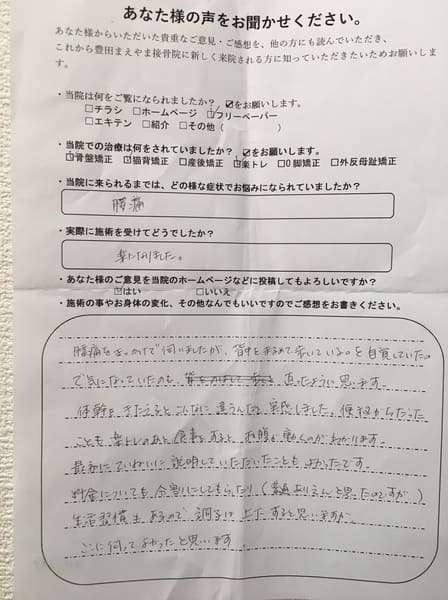 あなた様の声をお聞かせください。
あなた様からいただいた貴重なご意見・ご感想を、他の方にも読んでいただき、
これから豊田まえやま接骨院に新しく来院される方に知っていただきたいためお願いしま
す。
・当院は何をご覧になられましたか？ ☑をお願いします。
□チラシ □ホームページ ☑フリーペーパー
□エキテン □紹介 □その他（ ）
・当院での治療は何をされていましたか？ ☑をお願いします。
☑骨盤矯正 ☑猫背矯正 □産後矯正 ☑楽トレ □O脚矯正 □外反母趾矯正
・当院に来られるまでは、どの様な症状でお悩みになられていましたか？
腰痛
・実際に施術を受けてどうでしたか？
楽になりました。
・あなた様のご意見を当院のホームページなどに投稿してもよろしいですか？
☑はい □いいえ
・施術の事やお身体の変化、その他なんでもいいですのでご感想をお書きください。
腰痛をきっかけで伺いましたが、背中をまるめて歩いているのを自覚していたの
で気になっていたのも、直ったように思います。
体幹をきたえるとこんなに違うんだと実感しました。便秘がちだった
ことも楽トレのあと食事をすると、お腹が動くのがわかります。
最初にていねいに説明していただいたこともよかったです。
料金についても分割にしてもらったり（ありえんと思ったのですが）
生活習慣もあるので調子は上下すると思いますが、
ここに伺ってよかったと思います。